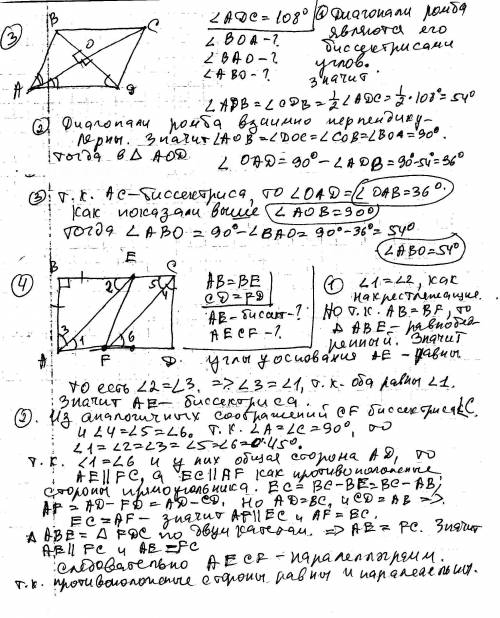 ③ ∠ADC = 108° ① Диагонали ромба
∠BOA - ? являются его
∠BAO - ? биссектрисами
∠ABO - ? углов.
Значит
B C O A D
∠ADB = ∠CDB = 1/2 ∠ADC = 1/2 · 108° = 54°
② Диагонали ромба взаимно перпендику-
лярны. Значит ∠AOB = ∠DOC = ∠COB = ∠BOA = 90°.
Тогда в △ AOD
∠OAD = 90° - ∠ADB = 90° - 54° = 36°
③ Т.к. AC - биссектриса, то ∠OAD = ∠OAB = 36°.
Как показали выше ∠AOB = 90°
Тогда ∠ABO = 90° - ∠BAO = 90° - 36° = 54°
∠ABO = 54°
④ B E C A F D 1 2 3 4 5 6
AB = BE
CD = FD
AE - биссект - ?
AECF - ?
① ∠1 = ∠2, как
накрестлежащие.
Но т.к. AB = BF, то
△ ABE - равнобед
ренный. Значит
углы у основания AE - равны
то есть ∠2 = ∠3. => ∠3 = ∠1, т.к. оба равны ∠1.
Значит AE - биссектриса.
2. Из аналогичных соображений CF биссектриса ∠C.
и ∠4 = ∠5 = ∠6. Т.к. ∠A = ∠C = 90°, то
∠1 = ∠2 = ∠3 = ∠5 = ∠6 = 45°.
Т.к. ∠1 = ∠6 и у них общая сторона AD, то
AE || FC, а EC || AF как противоположные
стороны прямоугольника. EC = BC - BE = BC - AB,
AF = AD - FD = AD - CD. Но AD = BC, и CD = AB =>
EC = AF - значит AF || EC и AF = EC.
△ ABE = △ FDC по двум катетам. => AE = FC. Значит
AE || FC и AE = FC
Следовательно AECF - параллелограмм.
т.к. противоположные стороны равны и параллельны.